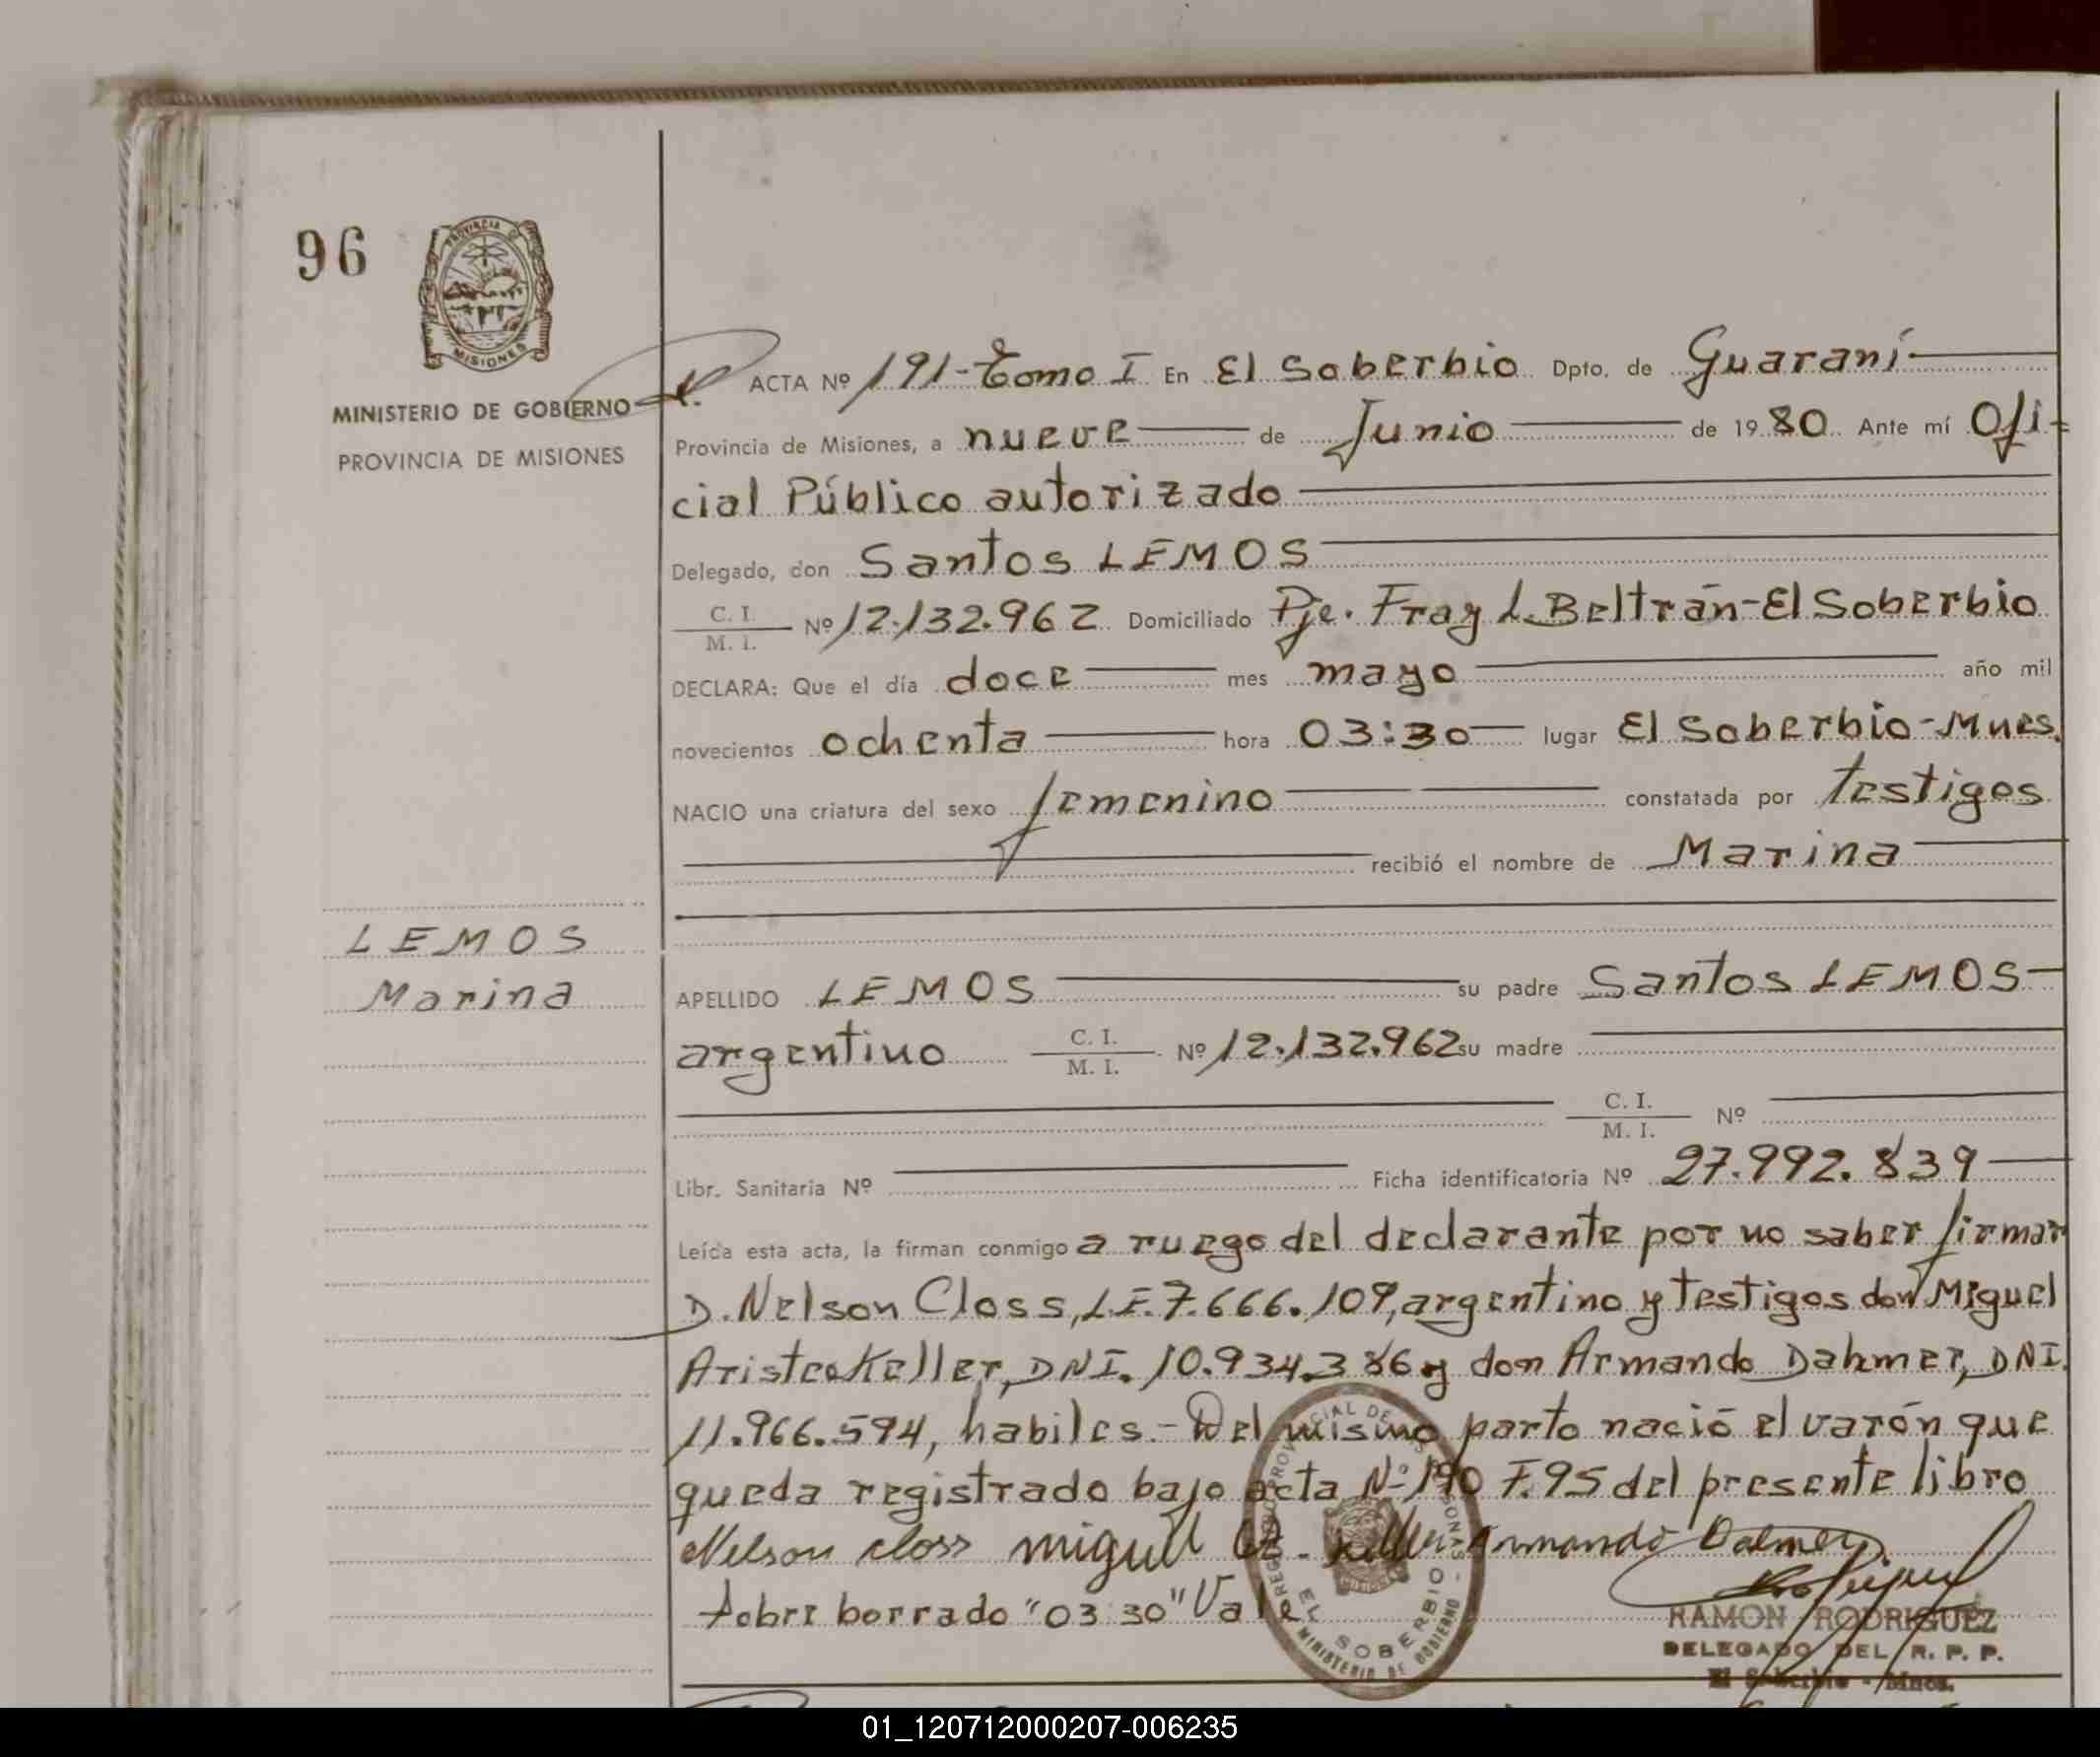 96
PROVINCIA DE
MISIONES
MINISTERIO DE GOBIERNO
PROVINCIA DE MISIONES
ACTA Nº 191-Tomo I En El Soberbio Dpto. de Guaraní
Provincia de Misiones, a nueve de Junio de 1980 Ante mí Ofi-
cial Público autorizado
Delegado, don Santos LEMOS
C. I.
M. I. Nº 12.132.962 Domiciliado Pje. Fray L. Beltrán-El Soberbio
DECLARA: Que el día doce mes mayo año mil
novecientos ochenta hora 03:30 lugar El Soberbio-Mnes.
NACIO una criatura del sexo femenino constatada por testigos
recibió el nombre de Marina
LEMOS
Marina
APELLIDO LEMOS su padre Santos LEMOS
argentino C. I. M. I. Nº 12.132.962 su madre
C. I.
M. I. Nº
Libr. Sanitaria Nº Ficha identificatoria Nº 27.992.839
Leída esta acta, la firman conmigo a ruego del declarante por no saber firmar
D. Nelson Closs, L.E. 7.666.109, argentino y testigos don Miguel
Aristeo Keller, DNI. 10.934.386 y don Armando Dahmer, DNI.
11.966.594, habiles.- Del mismo parto nació el varón que
queda registrado bajo acta Nº 190 F.95 del presente libro
Nelson Closs Miguel Keller Armando Dahmer
Sobre borrado "03 30" Vale
EL SOBERBIO
MINISTERIO DE GOBIERNO
RAMON RODRIGUEZ
DELEGADO DEL R. P. P.
El Soberbio - Mnes.
01_120712000207-006235